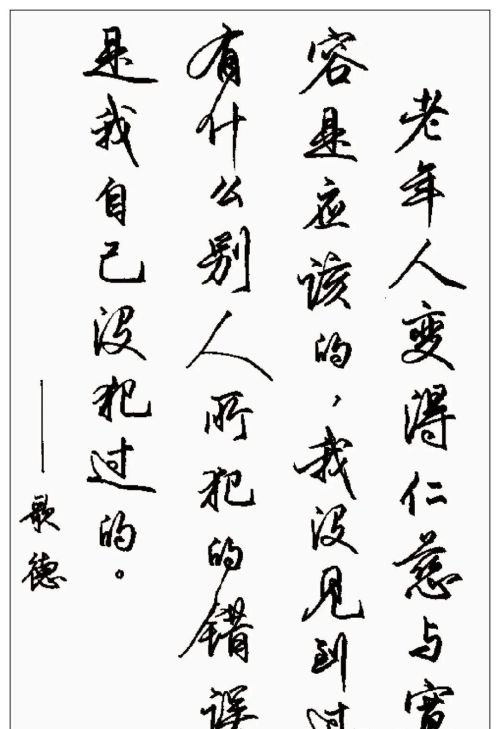 老年人变得仁慈与宽
容是应该的，我没见到过
有什么别人所犯的错误
是我自己没犯过的。
——歌德